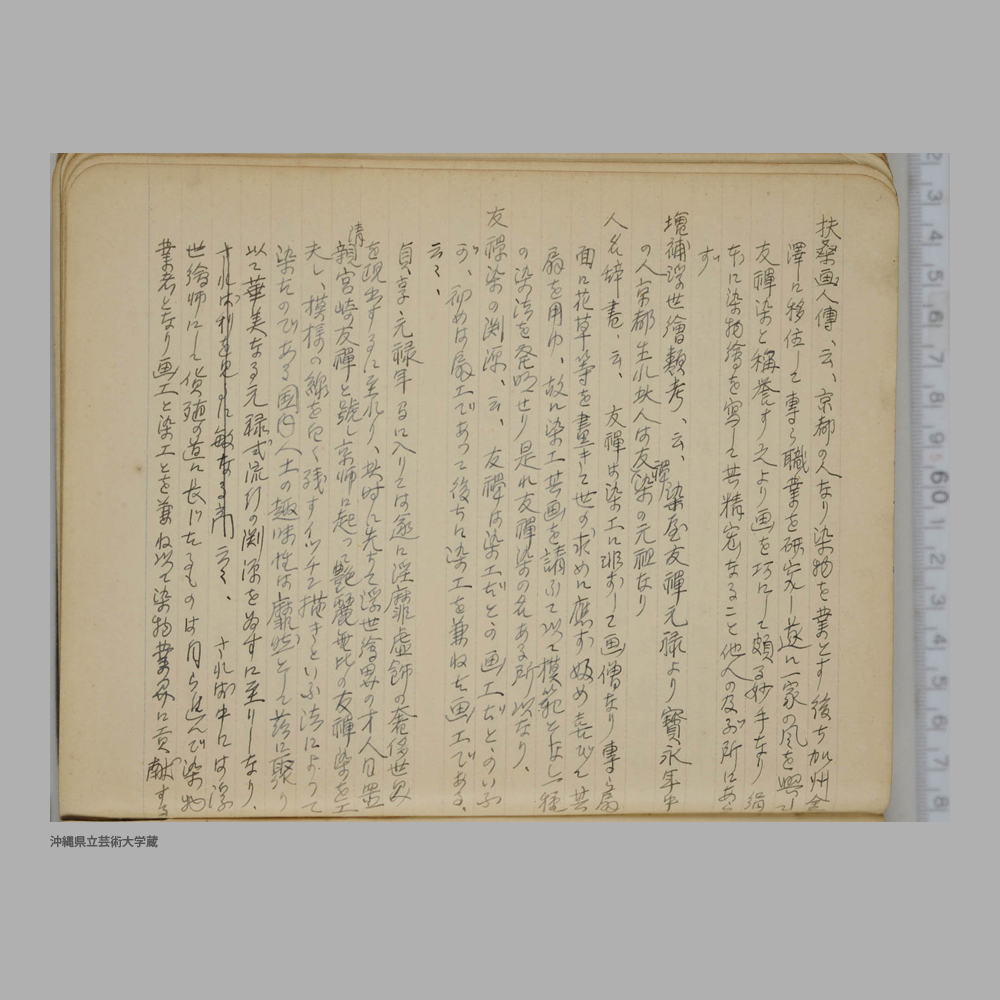 扶桑画人傳、云、京都の人なり染物を業とす 後ち加州金
澤に移住して專ら職業を研究し遂に一家の風を興し
友禪染と稱誉す之より画を巧にして頗る妙手なり 絹
布に染物繪を寫して其精密なること他人の及ぶ所にあら
ず
増補浮世繪類考、云、染屋友禪元禄より寶永年中
の人京都生れ此人は友禪染の元祖なり
人名辞書、云、友禪は染工に非ずして画僧なり専ら扇
面に花草等を畫きて世の求めに應ず 婦女喜びて其
扇を用ゆ、故に染工其画を請ふて以て模範となし一種
の染法を発明せり是れ友禪染の名ある所以なり、
友禪染の渕源、云、友禪は染工だとか画工だとかいふ
が、初めは扇工であって後ちに染工を兼ねた画工である、
云々、
貞享元禄年 に入りては遂に淫靡虚飾の奢侈世界
を現出するに至れり、此時に先ちて浮世繪界の才人日置
清親宮崎友禪と號し京師に起って艶麗無比の友禪染を工
夫し、模様の線を白く残すイッチン描きといふ法によって
染たのである国内人士の趣味性は靡然として茲に聚り
以て華美なる元禄式流行の渕源を為すに至りしなり、
されば利を見るに敏なる 云々、 されば中には浮
世繪師にして貨殖の道に長じたるものは自ら進んで染物
業者となり画工と染工とを兼ね以て染物業界に貢献する
60
沖縄県立芸術大学蔵